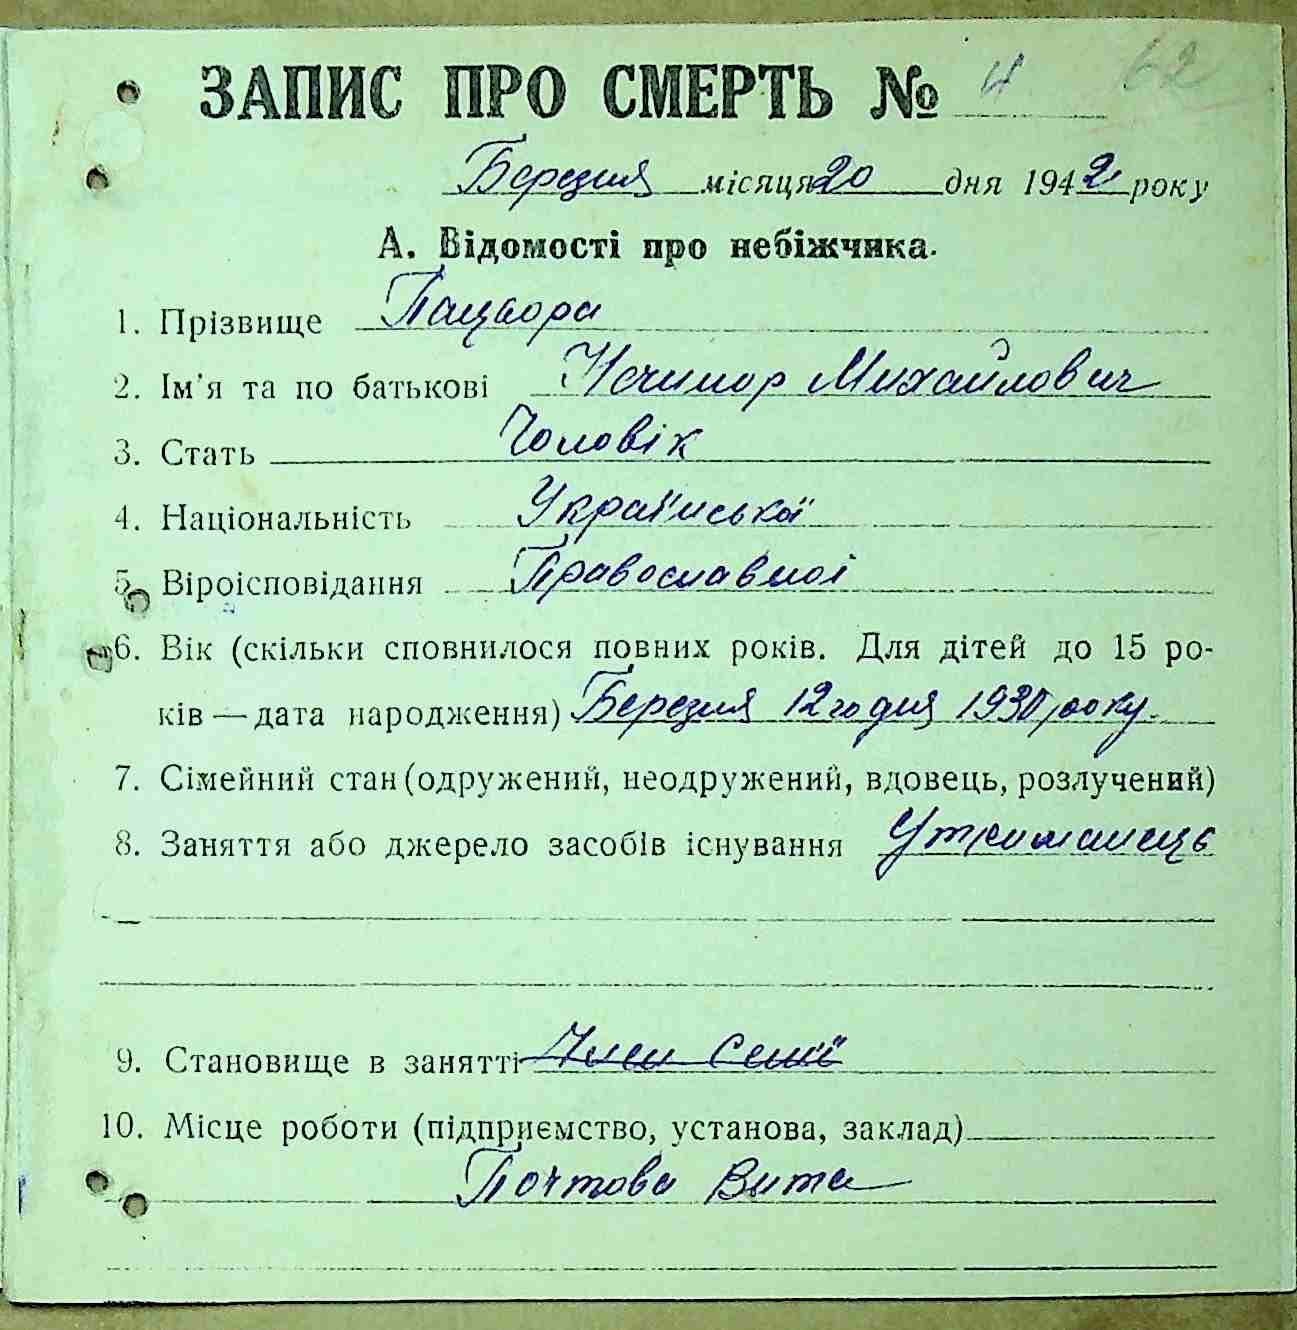 ЗАПИС ПРО СМЕРТЬ № 4 62
Березня місяця 20 дня 1942 року
А. Відомості про небіжчика.
1. Прізвище Пацьора
2. Ім'я та по батькові Нечипор Михайлович
3. Стать Чоловік
4. Національність Української
5. Віроісповідання Православної
6. Вік (скільки сповнилося повних років. Для дітей до 15 ро-
ків — дата народження) Березня 12го дня 1930 року.
7. Сімейний стан (одружений, неодружений, вдовець, розлучений)
8. Заняття або джерело засобів існування Утриманець
9. Становище в занятті Член Семії
10. Місце роботи (підприємство, установа, заклад)
Почтова Вита